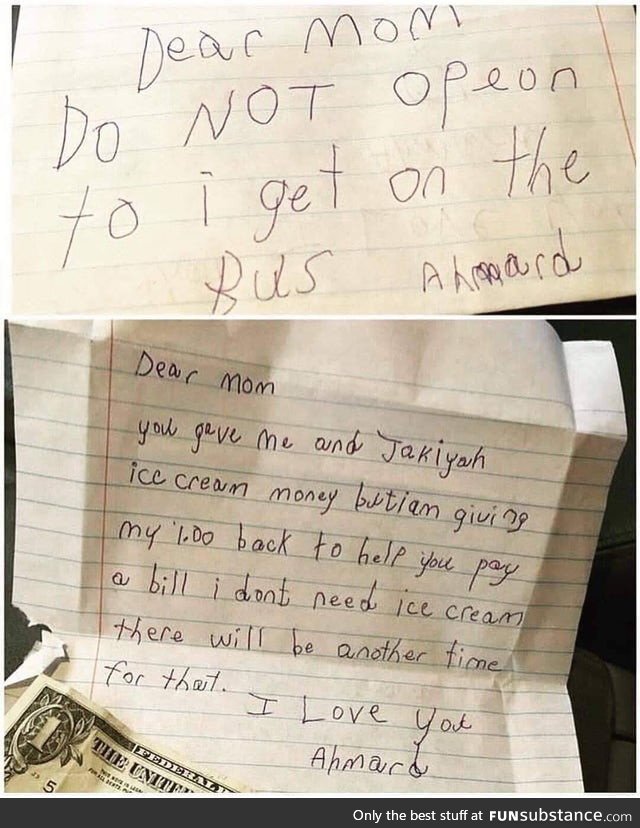 Dear Mom
Do NOT opeon
to i get on the
BUS Ahmard
Dear Mom
you gave me and Jakiyah
ice cream money butiam giving
my 1.00 back to help you pay
a bill i dont need ice cream
there will be another time
for that.
I Love you
Ahmard
FEDERAL
THE UNITE
5
Only the best stuff at FUNsubstance.com